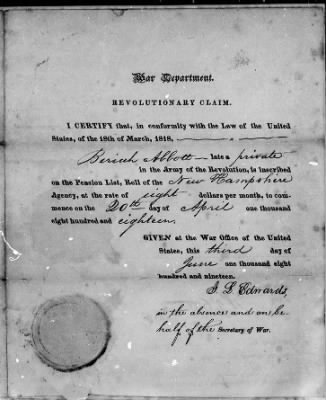 War Department.
REVOLUTIONARY CLAIM.
I CERTIFY that, in conformity with the Law of the United
States, of the 18th of March, 1818,
Beriah Abbott late a private
in the Army of the Revolution, is inscribed
on the Pension List, Roll of the New Hampshire
Agency, at the rate of eight dollars per month, to com-
mence on the 20th day of April one thousand
eight hundred and eighteen.
GIVEN at the War Office of the United
States, this third day of
June one thousand eight
hundred and nineteen.
J. L. Edwards,
in the absence and on be
half of the Secretary of War.